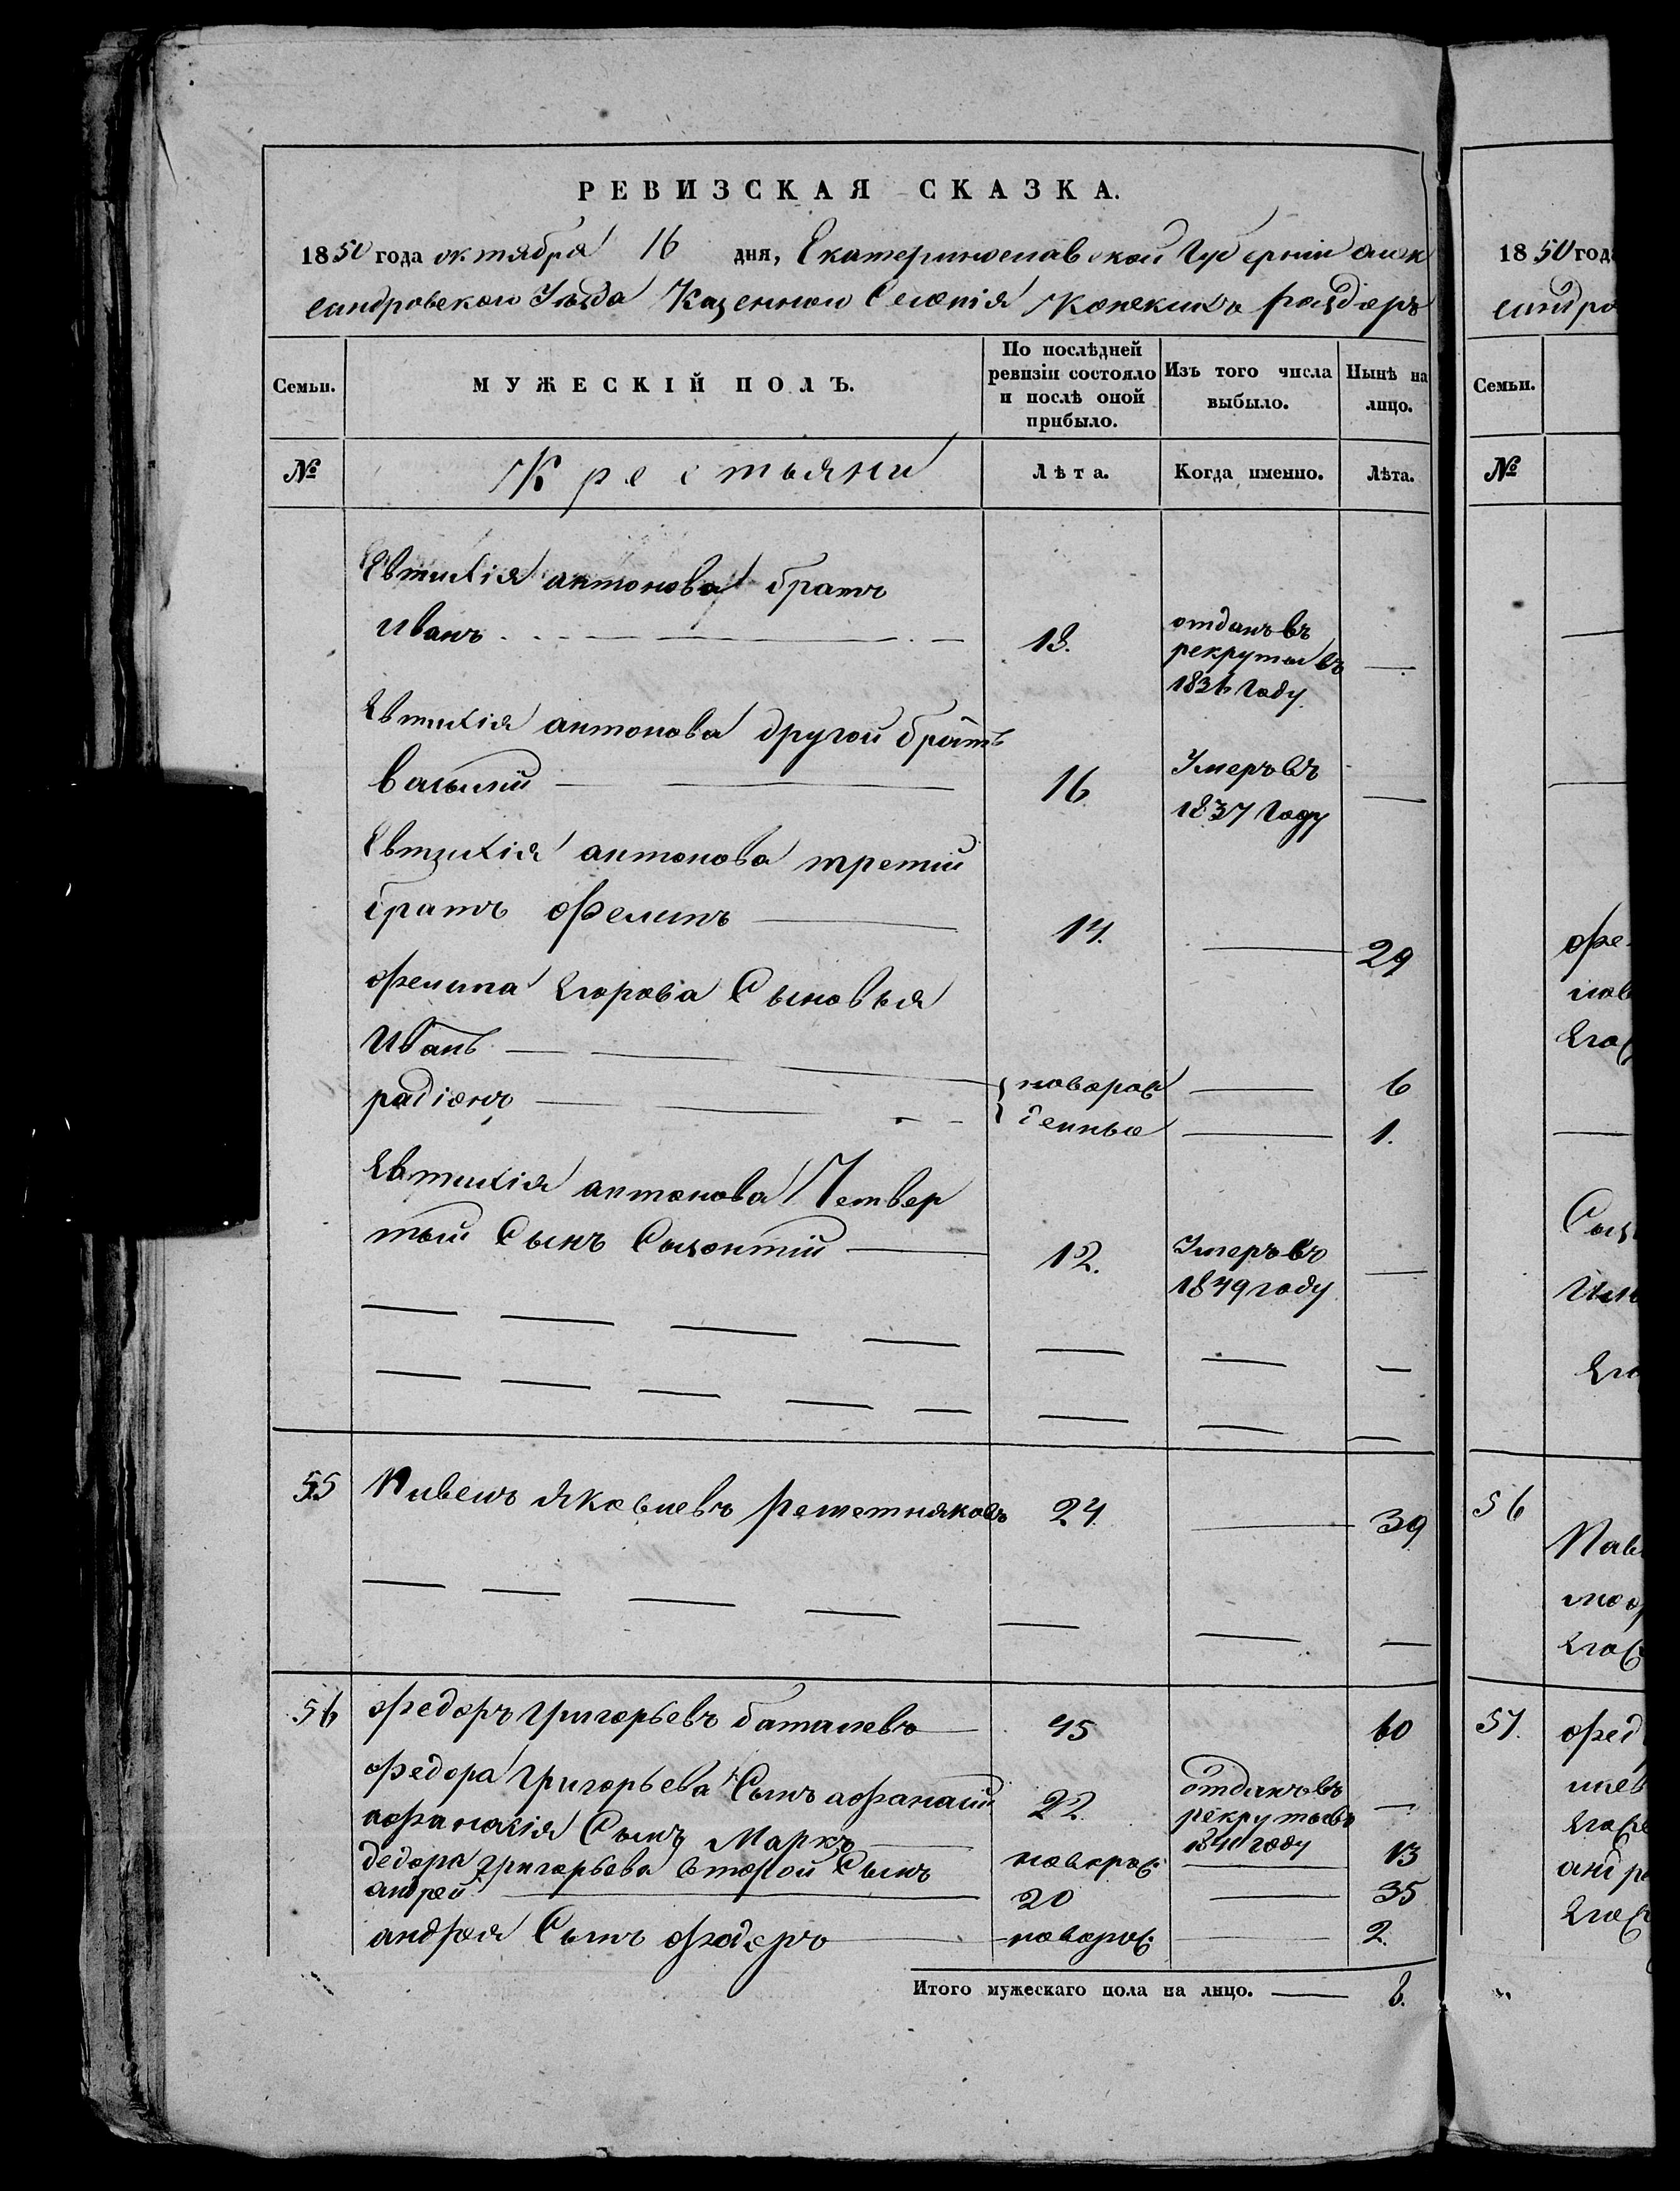 РЕВИЗСКАЯ СКАЗКА.
1850 года октября 16 дня, Екатеринославской Губерніи алек
сандровскаго Уѣзда Казеннаго Селенія Конскихъ раздоръ
Семьи.
МУЖЕСКІЙ ПОЛЪ.
По послѣдней ревизіи состояло и послѣ оной прибыло.
Изъ того числа выбыло.
Нынѣ на лицо.
№
Крестьяни
Лѣта.
Когда именно.
Лѣта.
Евтихія антонова братъ
иванъ 18. отданъ въ рекруты въ 1836 году
Евтихія антонова другой братъ
василій 16 Умеръ въ 1837 году
Евтихія антонова третій
братъ филипъ 14. 29
филипа Егорова Сыновья
Иванъ новорож 6
радіонъ денные 1.
Евтихія антонова Четвер
тый Сынъ 12. Умеръ въ 1849 году
55 Павелъ яковлевъ решетняковъ 24 39
56 федоръ григорьевъ баталевъ 45 60
федора григорьева Сынъ афанасій 22 отданъ въ рекруты въ 1840 году
афанасія Сынъ Маркъ новорож. 13
федора григорьева второй Сынъ
андрей 20 35
андрея Сынъ федоръ новорож. 2.
Итого мужескаго пола на лицо. 8.
1850 года
сандро
Семьи.
№
фе
Его
Сы
56
Пав
Его
57.
фед
андре
Его